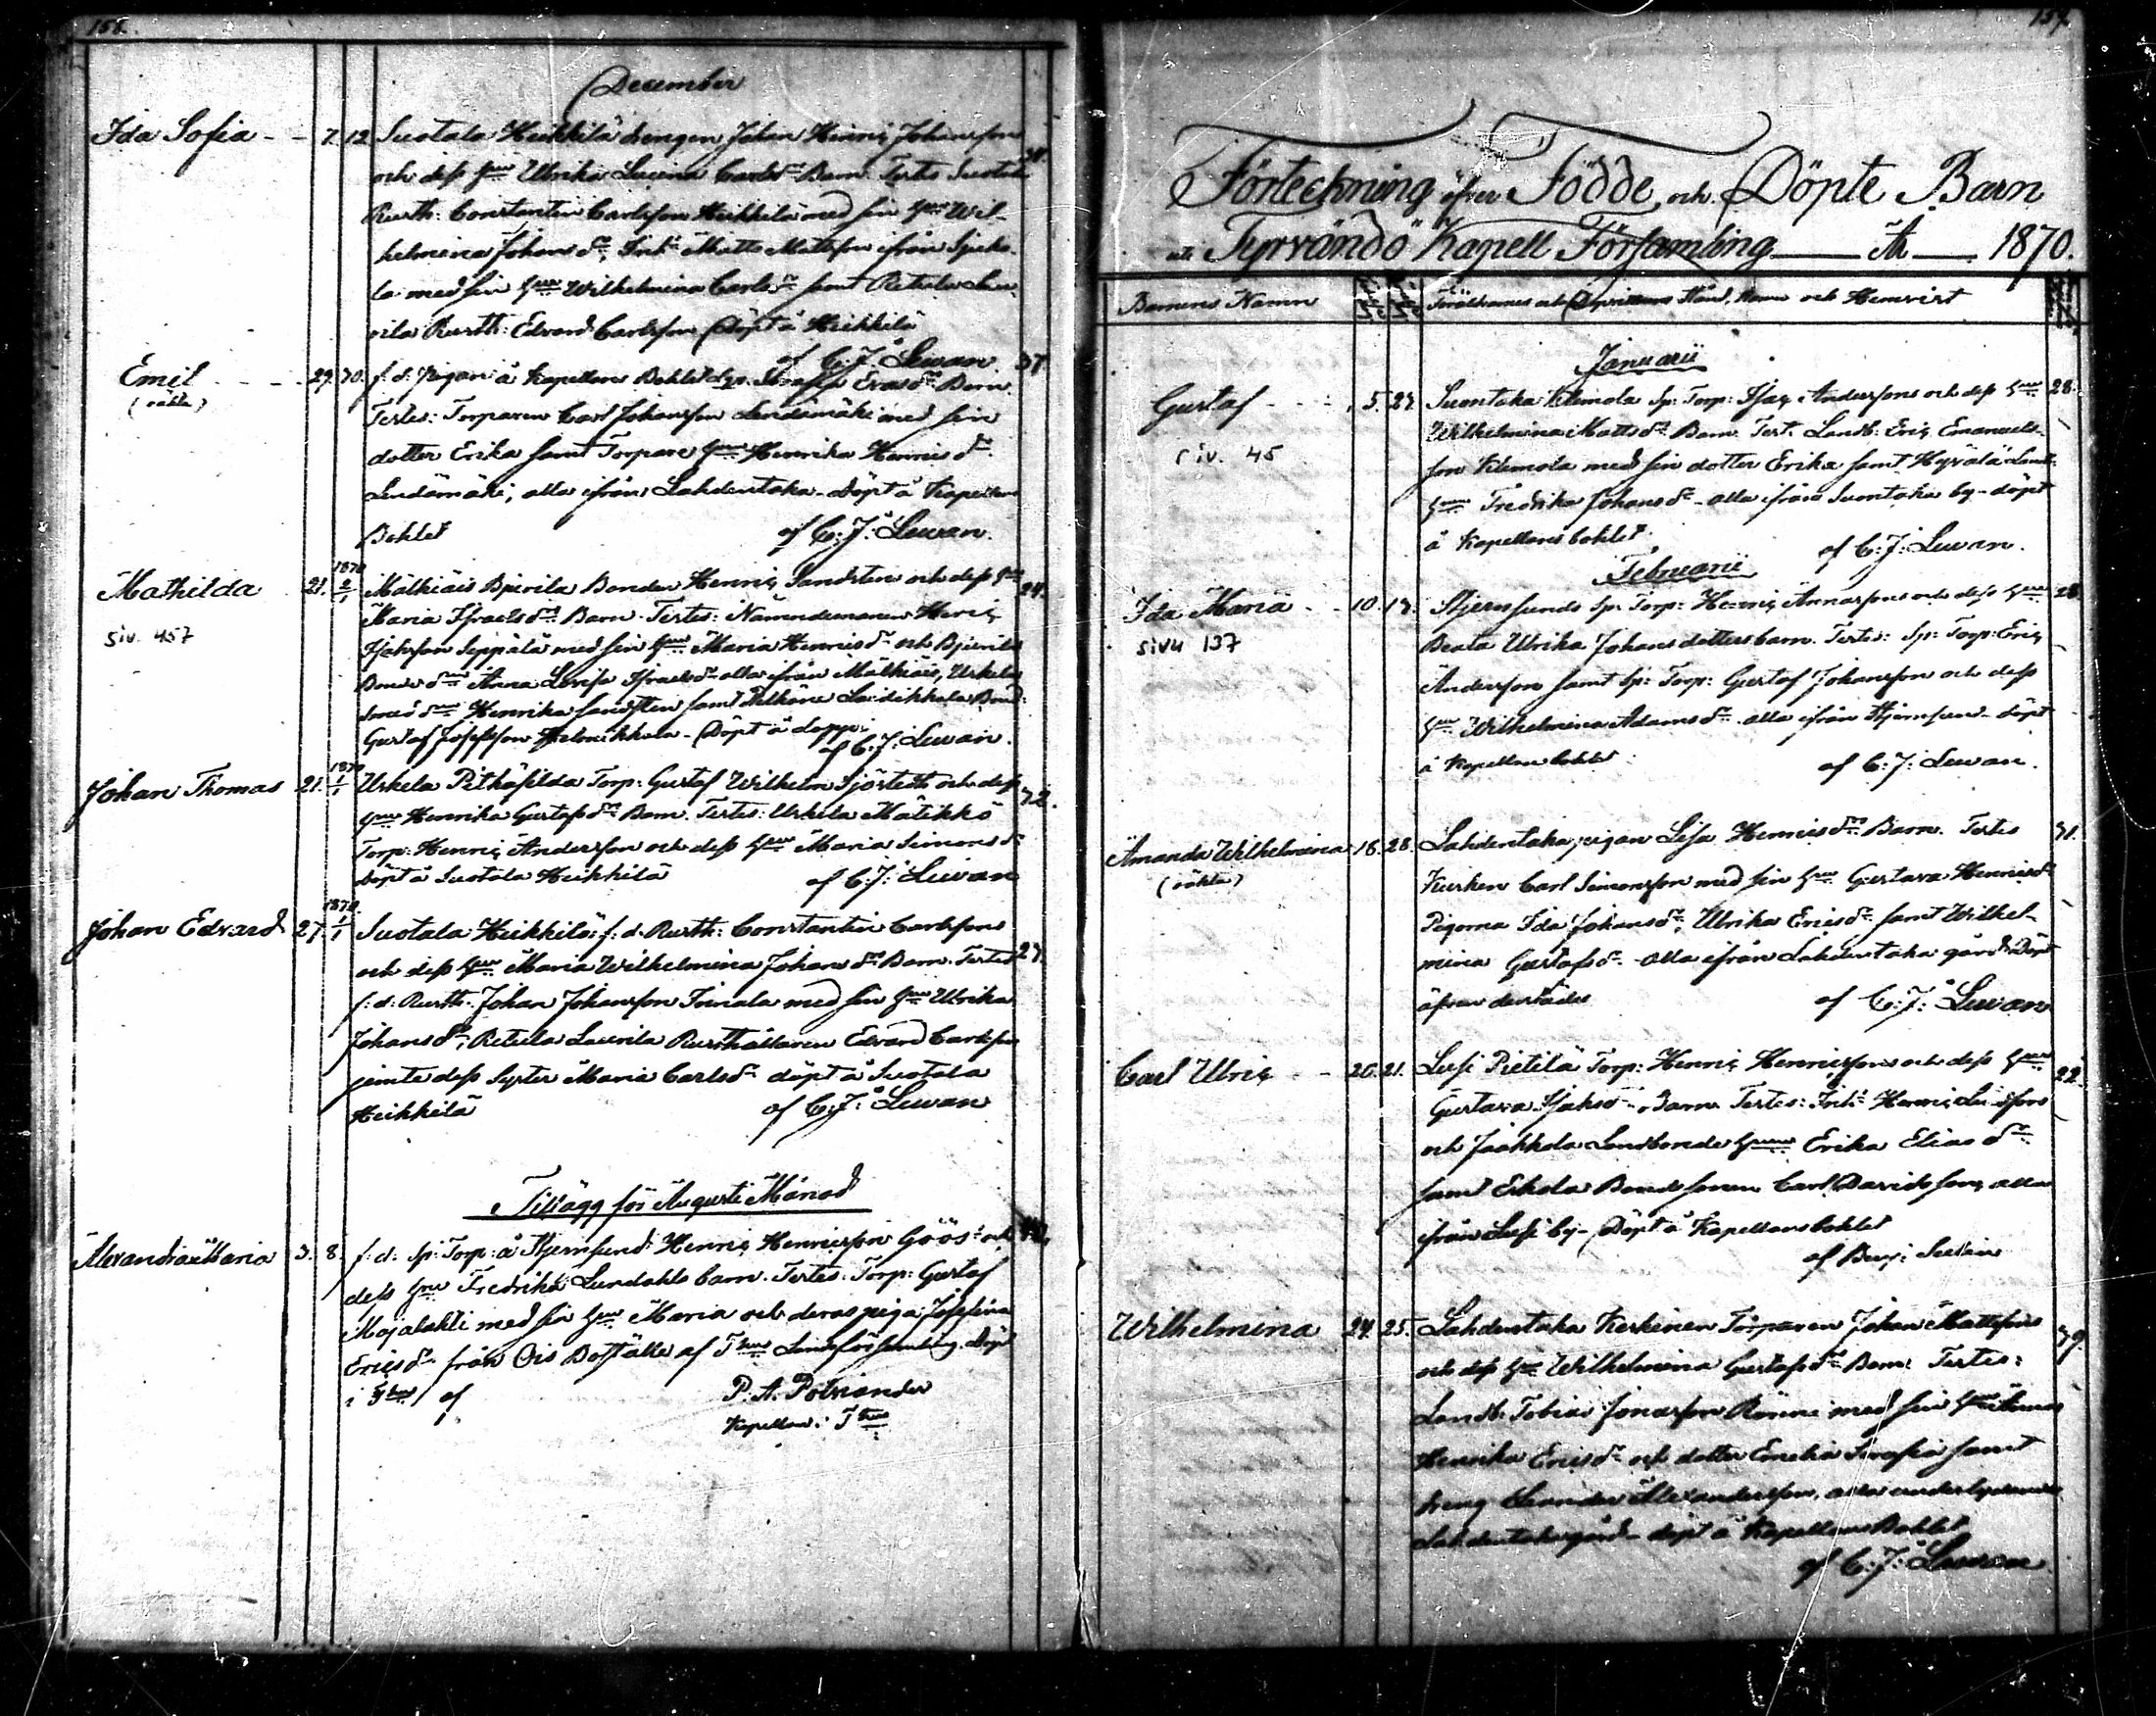 158.
December
Ida Sofia - - 7. 12 Suotala Heikkilä drengen Johan Henriç Johansson
och dess hu Ulrika Lovina Carlsdrs Barn. Testes Suotala
Rusth: Constantin Carlsson Heikkilä med sin hu Wil-
helmina Johansdr, Inh: Matts Mattsson ifrån Sjuko-
la med sin hu Wilhelmina Carlsdr samt Retula Lau-
rila Rusth: Edvard Carlsson Döpt å Heikkilä
af C: J: Lewan.
Emil - - - 29. 30. f. d. Pigan å Kapellans Bohlet Serafia Ericsdrs Barn. 37
(oäkta)
Testes: Torparen Carl Johansson Lendämäki med sin
dotter Erika samt Torpare hu Henrika Henricsdr
Lendämäki, alla ifrån Lahdentaka - Döpt å Kapellans
Bohlet af C: J: Lewan.
Mathilda 21. 1870 2/1 Mälkiäis Bjerila Bonden Henriç Sandsten och dess hu 24.
siv. 457
Maria Israelsdrs Barn. Testes: Nämndemannen Henriç
Isaksson Seppälä med sin hu Maria Henricsdr och Bjerila
Bonde Anna Lovisa Israelsdr alla ifrån Mälkiäis, Uskela
Henrika Sandsten samt Pälkäne Laidikkala
Gustaf Josefsson - Döpt å
af C: J: Lewan.
Johan Thomas 21. 1870 1/1 Uskela Pitkäsilda Torp: Gustaf Wilhelm Sjöstedt och dess 32.
hu Henrika Gustafsdrs Barn. Testes: Uskela Mätikkö
Torp: Henriç Andersson och dess hu Maria Simonsdr
döpt å Suotala Heikkilä af C: J: Lewan
Johan Edvard 27. 1870. 1/1 Suotala Heikkilä f: d: Rusth: Constantin Carlssons
och dess hu Maria Wilhelmina Johansdrs Barn. Testes 27.
f: d: Rusth: Johan Johansson Toivala med sin hu Ulrika
Johansdr, Retula Laurila Rusthållaren Edvard Carlsson
jemte dess Syster Maria Carlsdr döpt å Suotala
Heikkilä af C: J: Lewan
Tillägg för Augusti Månad
Alexandra Maria 3. 8. f: d: Sp: Torp: å Stjernsund: Henriç Henricsson Göös: och 42.
dess hu Fredrika Lundahls barn. Testes: Torp: Gustaf
Majalahti med sin hu Maria och deras piga Josefina
Ericsdr från Ois Boställe af Thus Landsförsamling. Döpt
i Thus af P. A. Polviander
Kapellan i Thus
157.
Förteckning öfver Födde och Döpte Barn
uti Tyrväntö Kapell Församling År 1870.
Barnens Namn Föräldrarnes och Dopvittnens Stånd, Namn och Hemvist
Januarii
Gustaf - - - 5. 27. Suontaka Klemola Sp: Torp: Isaç Anderssons och dess hu 28.
siv. 45
Wilhelmina Mattsdrs Barn. Test. Landb: Eriç Emanuels-
son Klemola med sin dotter Erika samt Hyvälä Landb:
hu Fredrika Johansdr - alla ifrån Suontaka by - döpt
å Kapellans bohlet af C: J: Lewan.
Februarii
Ida Maria - - 10. 13. Stjernsunds Sp. Torp: Henriç Anderssons och dess hu 28.
sivu 137
Beata Ulrika Johansdotters barn. Testes: Sp: Torp: Eriç
Andersson samt Sp: Torp: Gustaf Johansson och dess
hu Wilhelmina Adamsdr - alla ifrån Stjernsund - döpt
å Kapellans bohlet af C: J: Lewan.
Amanda Wilhelmina 18. 28. Lahdentaka, pigan Lisa Henricsdrs Barn. Testes 31.
(oäkta)
Kusken Carl Simonsson med sin hu Gustava Henricsdr
Pigorna Ida Johansdr, Ulrika Ericsdr samt Wilhel-
mina Gustafsdr - alla ifrån Lahdentaka gård. Döpt
äfven derstädes af C: J: Lewan
Carl Ulriç - - 20. 21. Lusi Pietilä Torp: Henriç Henricssons och dess hu 22.
Gustava Isaksdrs Barn. Testes: Inh: Henriç
och Jaakkola Landbonde hu Erika Eliasdr
samt Erkola Bonde sonen Carl Davidsson, alla
ifrån Lusi by - Döpt å Kapellansbohlet
af Benj:
Wilhelmina 24. 25. Lahdentaka Keskinen Torparen Johan Mattssons 39.
och dess hu Wilhelmina Gustafsdrs Barn. Testes:
Landb: Tobias Jonasson Rönni med sin hustru
Henrika Ericsdr och dotter Emelia Serafia samt
dreng Leander Alexandersson, alla underlydande
Lahdentaka gård - döpt å Kapellans Bohlet
af C: J: Lewan